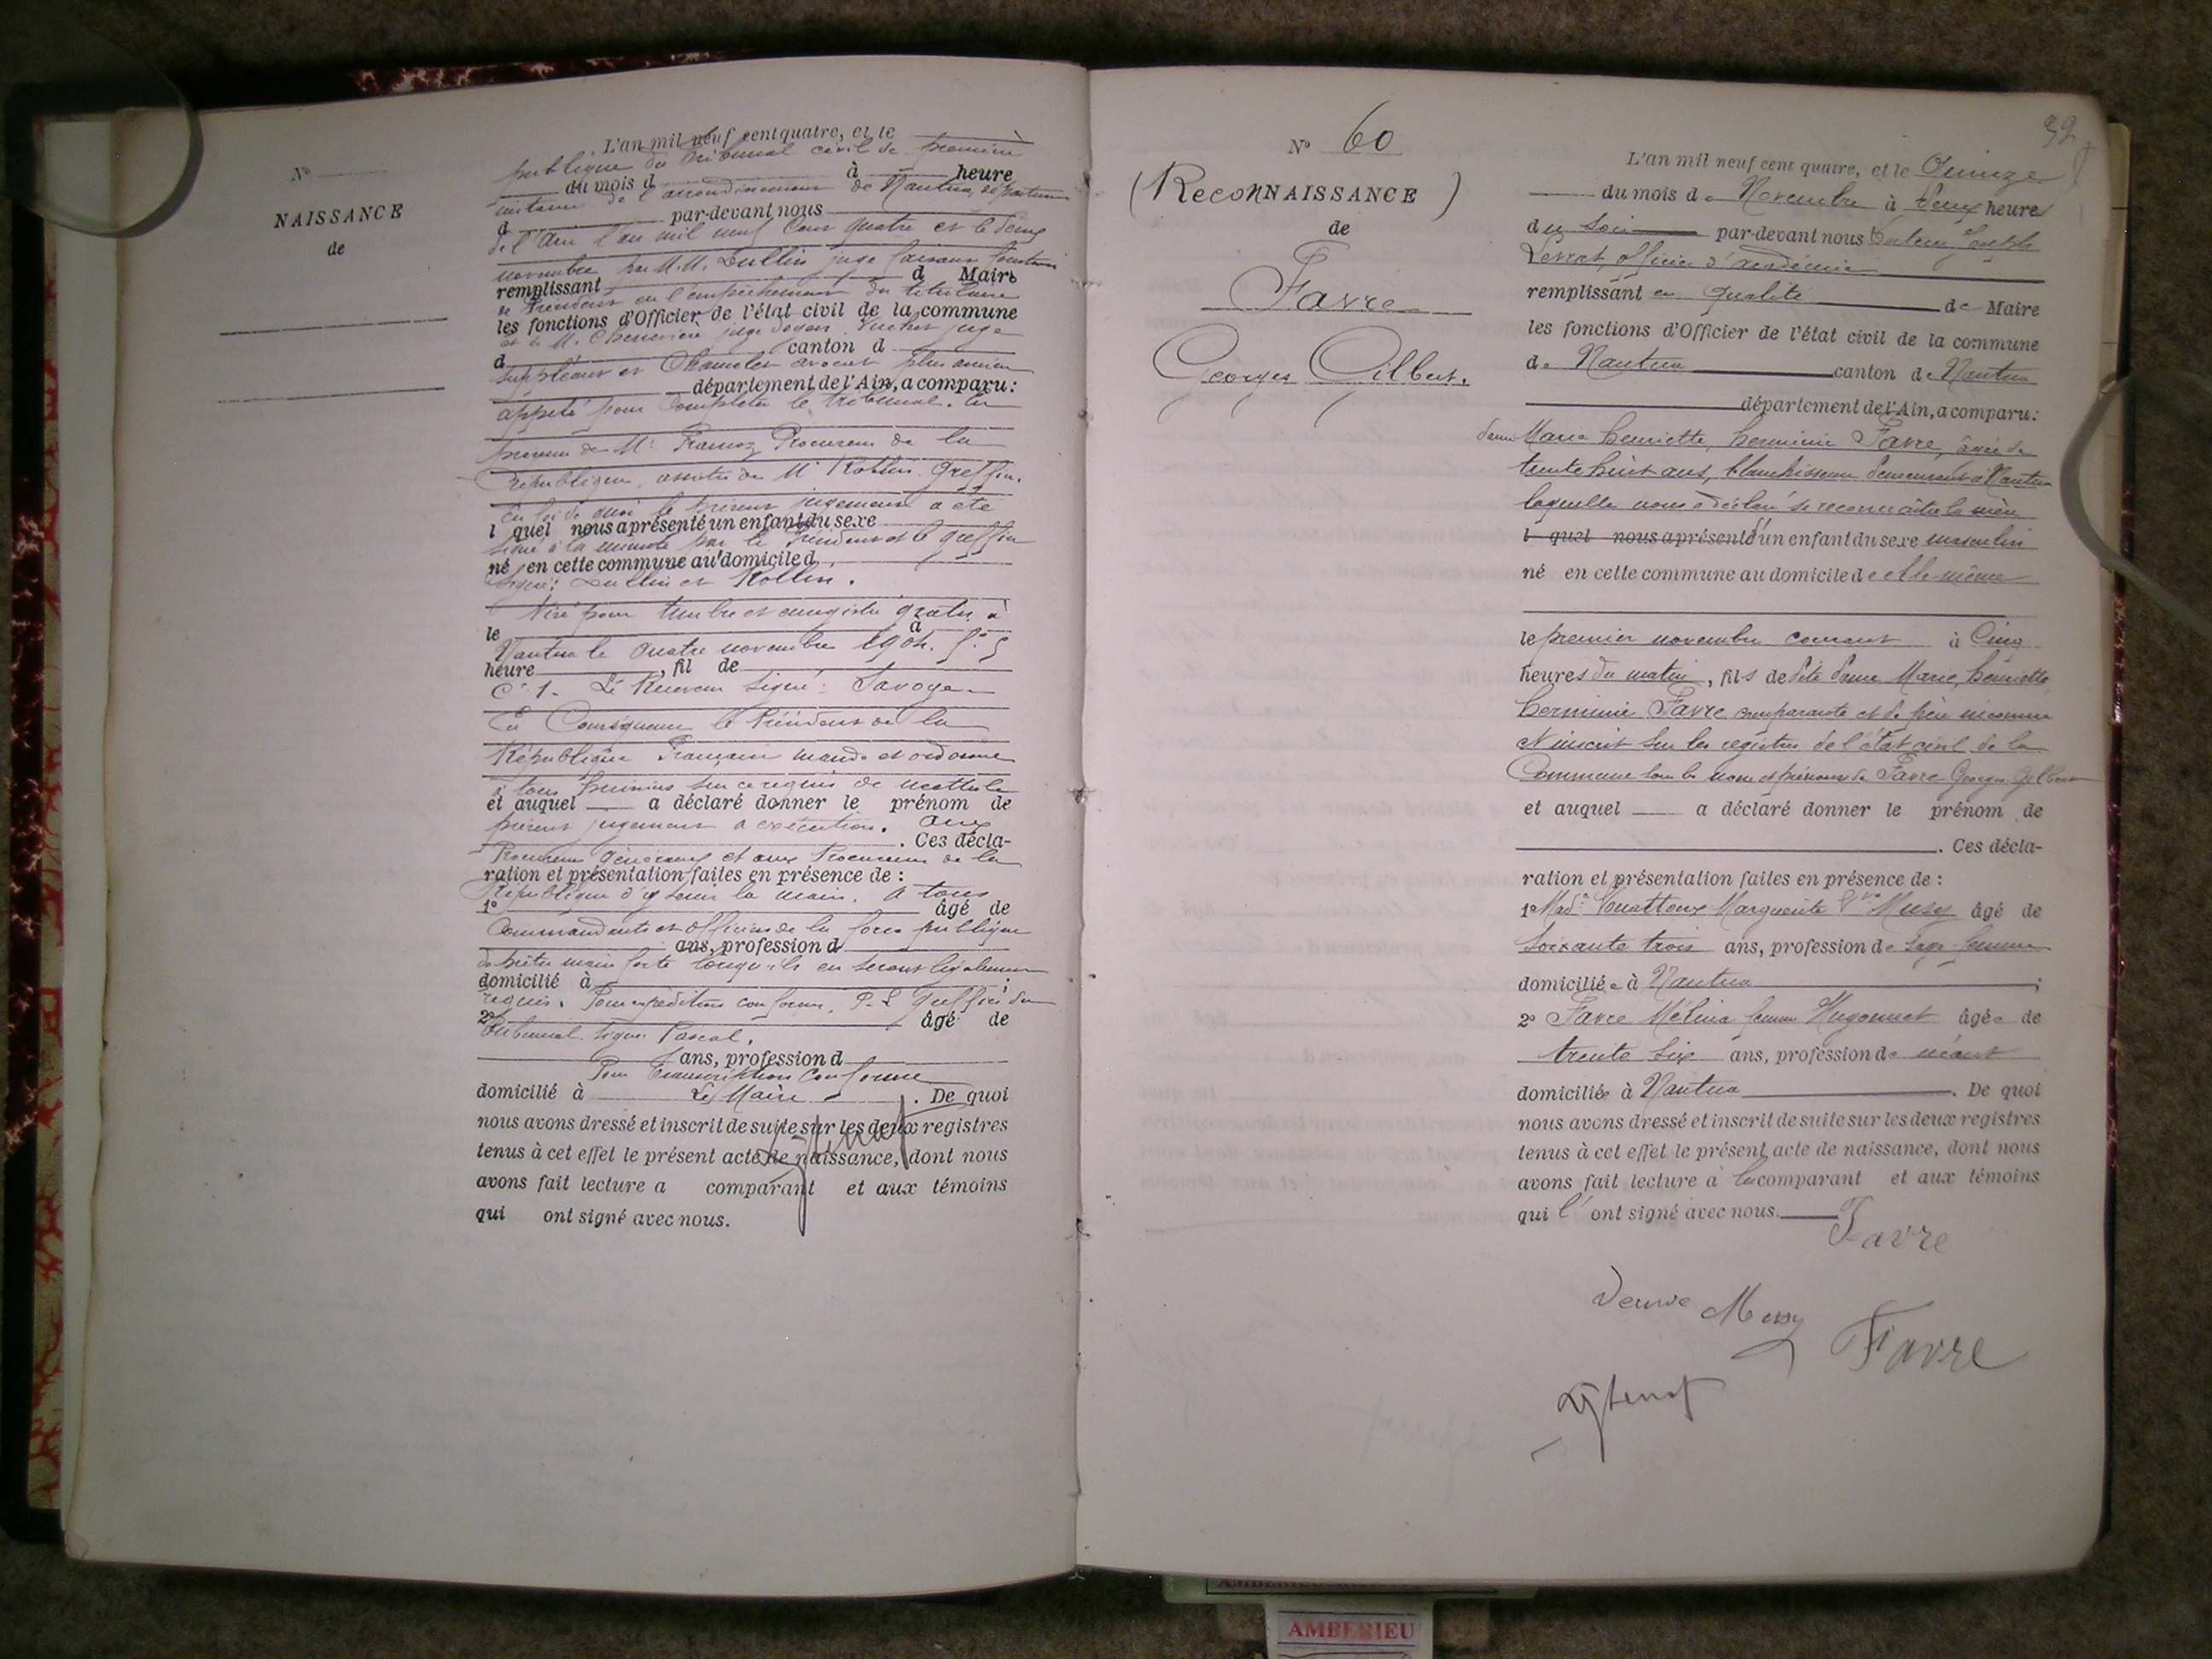 L'an mil neuf cent quatre, et le
publique du tribunal civil de première
N°
du mois d à heure
instance de l'arrondissement de Nantua, département
NAISSANCE
d par-devant nous
de l'Ain l'an mil neuf cent quatre et le deux
de
novembre par M.M. Dullin juge faisant fonctions
remplissant d Maire
de Président en l'empêchement du titulaire
les fonctions d'Officier de l'état civil de la commune
et de M. juge doyen, juge
d canton d
suppléant et avocat plus ancien
département de l'Ain, a comparu :
appelé pour compléter le tribunal. En
présence de Mr Procureur de la
République, assisté de Mr Rollin Greffier.
En foi de quoi le présent jugement a été
l quel nous a présenté un enfant du sexe
signé à la minute par le Président et le greffier
né en cette commune au domicile d
Signé : Dullin et Rollin.
Visé pour timbre et enregistré gratis à
le à
Nantua le quatre novembre 1904. f° 5
heure , fil de
Cé 1. Le Receveur signé : Savoye
En Conséquence le Président de la
République Française mande et ordonne
à tous huissiers sur ce requis de mettre le
et auquel a déclaré donner le prénom de
présent jugement à exécution. aux
. Ces décla-
Procureurs Généraux et aux Procureurs de la
ration et présentation faites en présence de :
République d'y tenir la main. A tous
1° âgé de
Commandants et officiers de la force publique
ans, profession d
de prêter main forte lorsqu'ils en seront légalement
domicilié à ;
requis. Pour expédition conforme. P. Le greffier du
2° âgé de
Tribunal. Signé Pascal.
ans, profession d
Pour transcription conforme
domicilié à Le Maire . De quoi
nous avons dressé et inscrit de suite sur les deux registres
tenus à cet effet le présent acte de naissance, dont nous
avons fait lecture a comparant et aux témoins
qui ont signé avec nous.
32
N° 60
(RecoNNAISSANCE)
de
Favre
Georges Gilbert.
L'an mil neuf cent quatre, et le Quinze
du mois de Novembre à Deux heures
du soir par-devant nous
officier d'académie
remplissant en qualité de Maire
les fonctions d'Officier de l'état civil de la commune
de Nantua canton de Nantua
département de l'Ain, a comparu :
dame Marie Henriette, Herminie Favre, âgée de
trente huit ans, blanchisseuse demeurant à Nantua
laquelle nous a déclaré se reconnaître la mère
l quel nous a présenté d'un enfant du sexe masculin
né en cette commune au domicile de elle-même
le premier novembre courant à Cinq
heures du matin, fils de dite dame Marie, Henriette
Herminie Favre comparante et de père inconnu
et inscrit sur les registres de l'état civil de la
Commune sous les nom et prénoms de Favre Georges Gilbert
et auquel a déclaré donner le prénom de
. Ces décla-
ration et présentation faites en présence de :
1° Mad. Marguerite Vve Musy âgé de
Soixante trois ans, profession de sage-femme
domiciliée à Nantua ;
2° Favre Mélina femme Hugonnet âgée de
trente six ans, profession de néant
domiciliée à Nantua . De quoi
nous avons dressé et inscrit de suite sur les deux registres
tenus à cet effet le présent acte de naissance, dont nous
avons fait lecture à la comparant et aux témoins
qui l'ont signé avec nous.
Favre
Veuve Musy
Favre
AMBERIEU